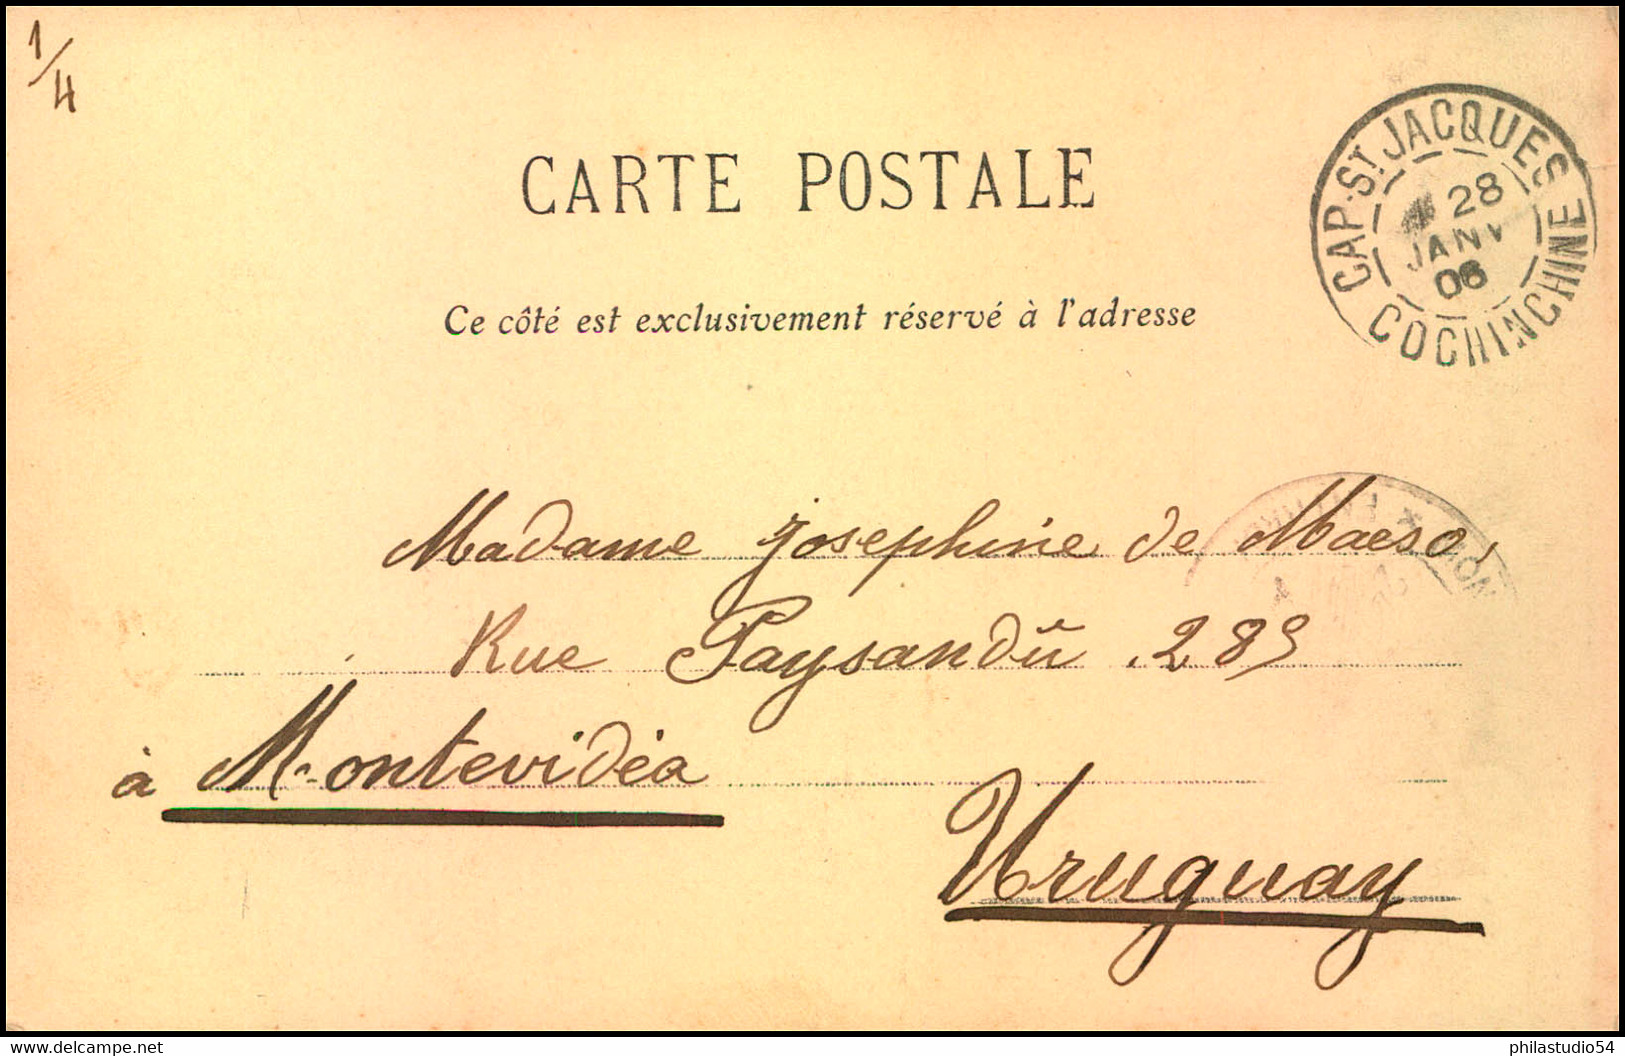 1/4
CARTE POSTALE
CAP-ST JACQUES
28
JANV
06
COCHINCHINE
Ce côté est exclusivement réservé à l'adresse
Madame Josephine de Maeso,
Rue Paysandü . 289
à Montevidéa
Uruguay
www.delcampe.net
philastudio54